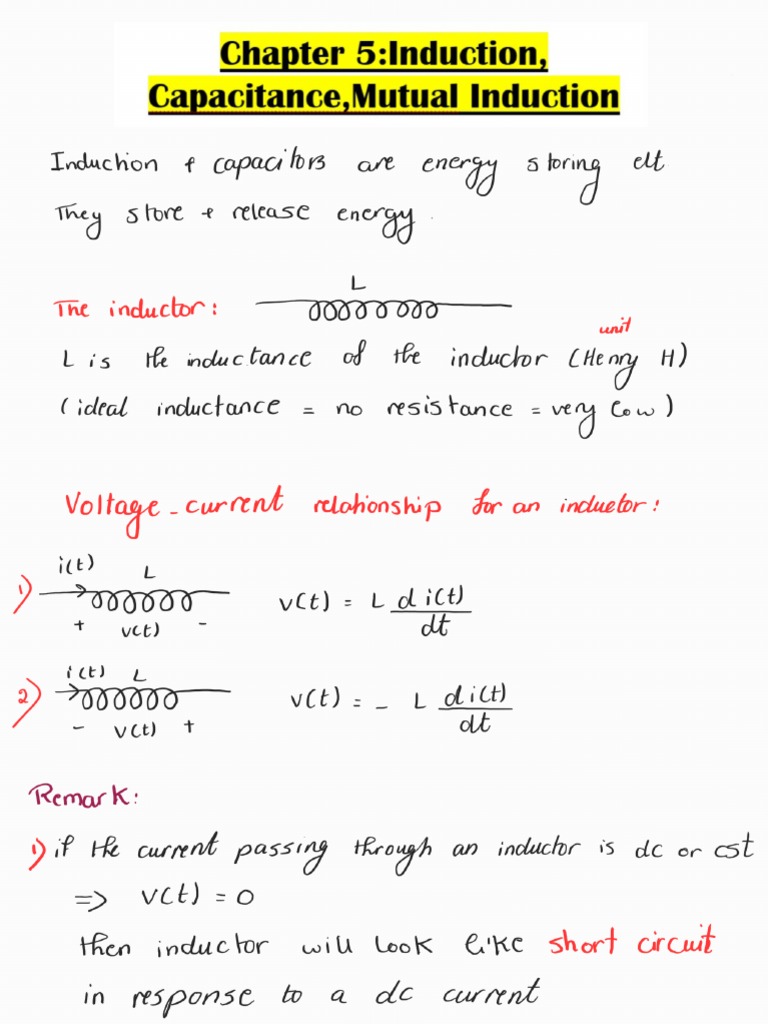 Chapter 5:Induction,
Capacitance,Mutual Induction
Induction & capacitors are energy storing elt
They store & release energy.
L
The inductor:
unit
L is the inductance of the inductor (Henry H)
(ideal inductance = no resistance = very low)
Voltage-current relationship for an inductor:
i(t) L
1) v(t) = L d i(t)
dt
+ v(t) -
i(t) L
2) v(t) = - L d i(t)
dt
- v(t) +
Remark:
1) if the current passing through an inductor is dc or cst
=> v(t) = 0
then inductor will look like short circuit
in response to a dc current